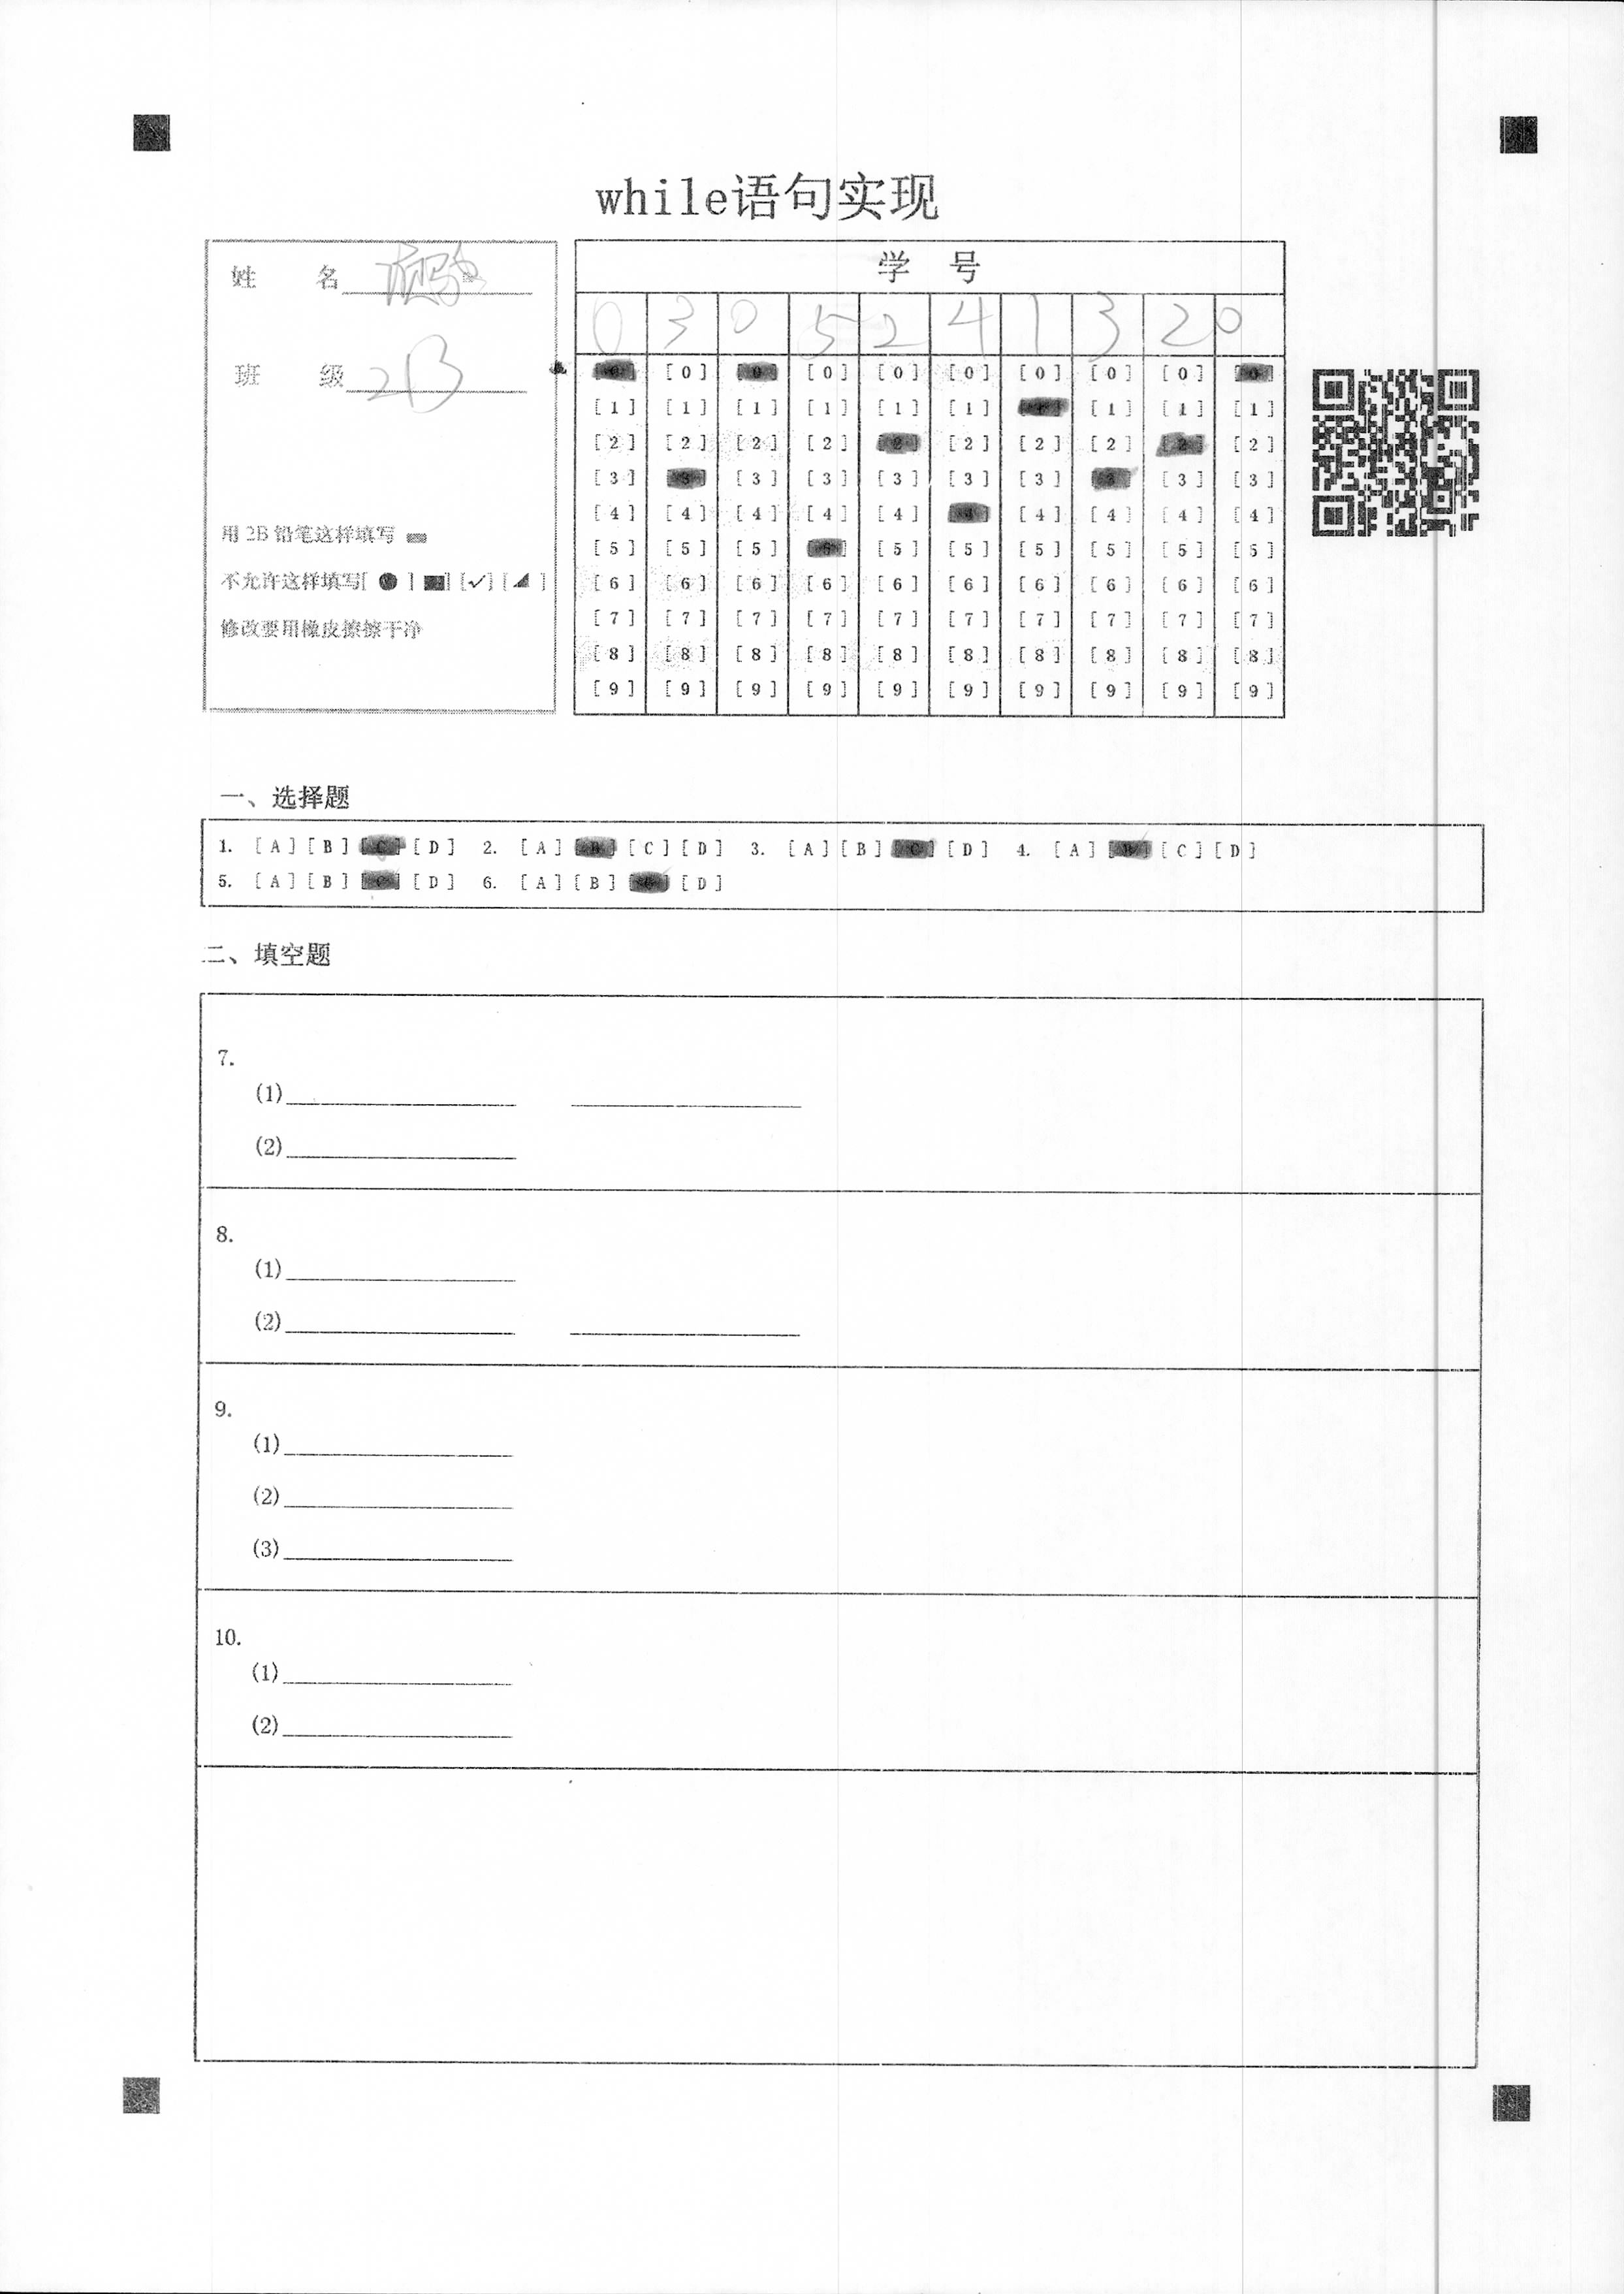 while语句实现
姓 名
班 级 213
用 2B 铅笔这样填写
不允许这样填写[ ● ] [■] [✓] [◢ ]
修改要用橡皮擦擦干净
学 号
0 3 0 5 2 4 1 3 2 0
[0] [0] [0] [0] [0] [0] [0] [0] [0] [0]
[1] [1] [1] [1] [1] [1] [1] [1] [1] [1]
[2] [2] [2] [2] [2] [2] [2] [2] [2] [2]
[3] [3] [3] [3] [3] [3] [3] [3] [3] [3]
[4] [4] [4] [4] [4] [4] [4] [4] [4] [4]
[5] [5] [5] [5] [5] [5] [5] [5] [5] [5]
[6] [6] [6] [6] [6] [6] [6] [6] [6] [6]
[7] [7] [7] [7] [7] [7] [7] [7] [7] [7]
[8] [8] [8] [8] [8] [8] [8] [8] [8] [8]
[9] [9] [9] [9] [9] [9] [9] [9] [9] [9]
一、选择题
1. [A] [B] [C] [D] 2. [A] [B] [C] [D] 3. [A] [B] [C] [D] 4. [A] [B] [C] [D]
5. [A] [B] [C] [D] 6. [A] [B] [C] [D]
二、填空题
7.
(1)
(2)
8.
(1)
(2)
9.
(1)
(2)
(3)
10.
(1)
(2)